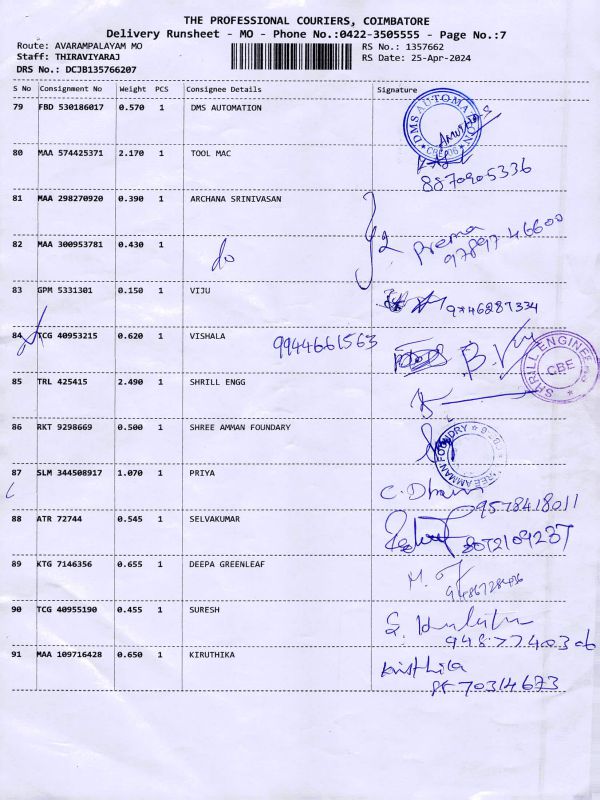 THE PROFESSIONAL COURIERS, COIMBATORE
Delivery Runsheet - MO - Phone No.:0422-3505555 - Page No.:7
Route: AVARAMPALAYAM MO RS No.: 1357662
Staff: THIRAVIYARAJ RS Date: 25-Apr-2024
DRS No.: DCJB135766207
S No Consignment No Weight PCS Consignee Details Signature
79 FBD 530186017 0.570 1 DMS AUTOMATION
DMS AUTOMATION
80 MAA 574425371 2.170 1 TOOL MAC
8870905336
81 MAA 298270920 0.390 1 ARCHANA SRINIVASAN
prema
97897 46600
82 MAA 300953781 0.430 1
do
83 GPM 5331301 0.150 1 VIJU
9746287334
84 TCG 40953215 0.620 1 VISHALA 9944661563
SHRILL ENGINEERS
CBE
85 TRL 425415 2.490 1 SHRILL ENGG
86 RKT 9298669 0.500 1 SHREE AMMAN FOUNDARY
87 SLM 344508917 1.070 1 PRIYA
9578418011
88 ATR 72744 0.545 1 SELVAKUMAR
89 KTG 7146356 0.655 1 DEEPA GREENLEAF
90 TCG 40955190 0.455 1 SURESH
91 MAA 109716428 0.650 1 KIRUTHIKA